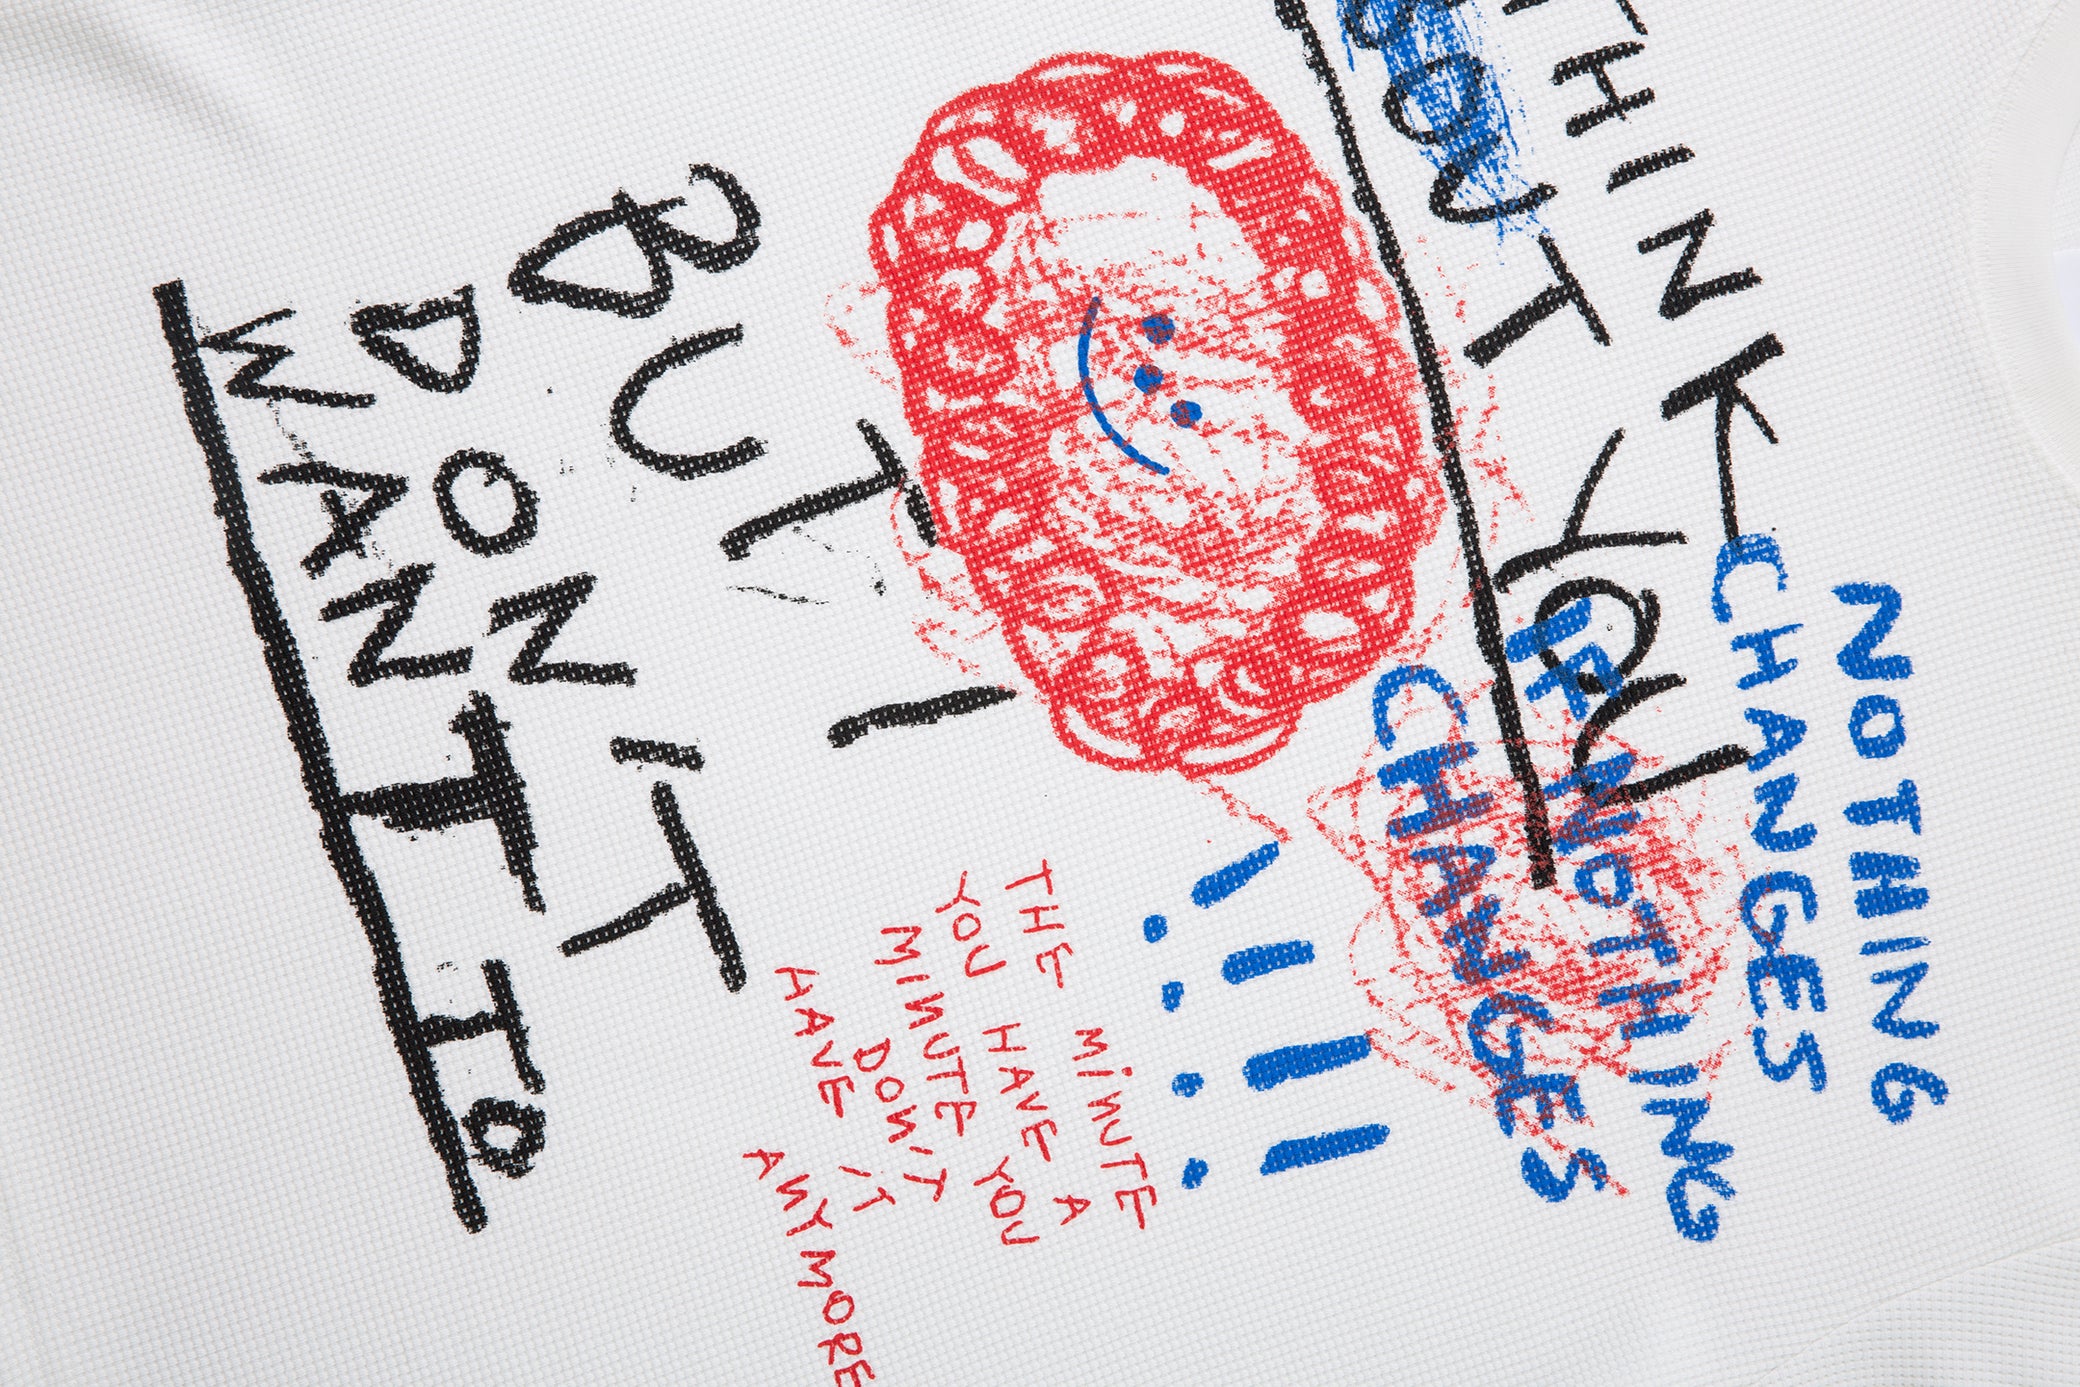 THINK
OUT YOU
NOTHING
CHANGES
IF NOTHING
CHANGES
!!!!
BUT I
DON'T
WANT TO
THE MINUTE
YOU HAVE A
MINUTE YOU
DON'T
HAVE IT
ANYMORE